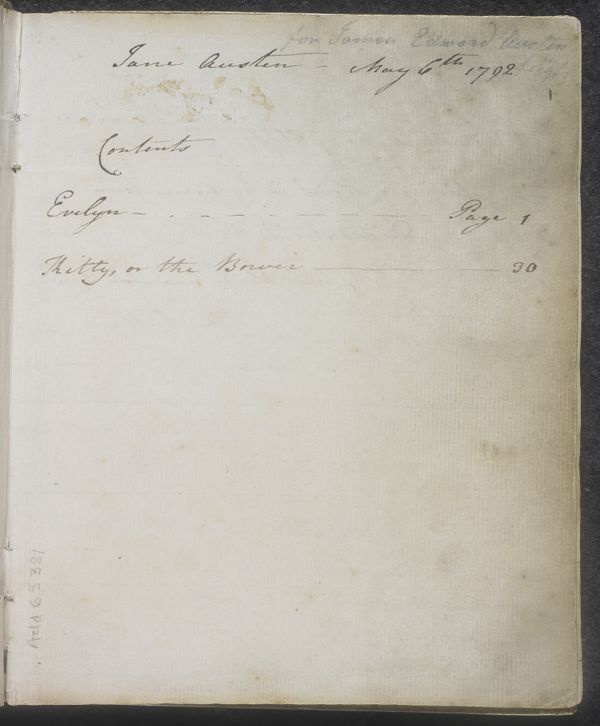 for James Edward Austen
Jane Austen – May 6th 1792.
1
Contents
Evelyn – . – – – – – – – Page 1
Kitty, or the Bower ——— — 30
Add 65381